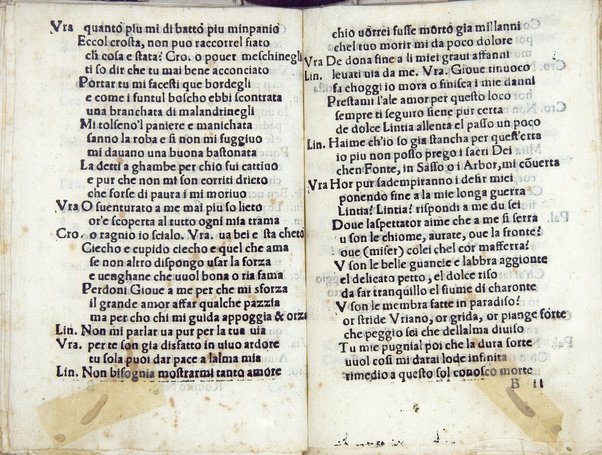 Vra quanto piu mi di batto piu minpanio
Eccol crosta, non puo raccorrel fiato
chi cosa e stata? Cro. o pouer meschinegli
ti so dir che tu mai bene acconciato
Portar tu mi facesti que bordegli
e come i funtul boscho ebbi scontrata
una branchata di malandrinegli
Mi tolseno'l paniere e manichata
sanno la roba e si non mi fuggiuo
mi dauano una buona bastonata
La detti a ghambe per chio sui cattino
e pur che non mi son corriti drieto
che forse di paura i mi moriuo
Vra O suenturato a me mal piu so lieto
or'e scoperta al tutto ogni mia trama
Cro. o ragnio io scialo. Vra. ua bei e sta cheto
Ciecho e cupido ciecho e quel che ama
se non altro dispongo usar la forza
e uenghane che uuol bona o ria fama
Perdoni Gioue a me per che mi sforza
il grande amor affar qualche pazzia
ma per cho chi mi guida appoggia & orza
Lin. Non mi parlar ua pur per la tue uia
Vra. per te son gia disfatto in uiuo ardore
tu sola puoi dar pace a lalma mia
Lin. Non bisognia mostrarmi tanto amore
chio uorrei fusse morto gia mill anni
chel tuo morir mi da poco dolore
Vra De dona fine a li miei graui affanni
Lin. leuati uia da me. Vra. Gioue tinuoco
fa choggi io mora o finisca i mie danni
Prestami l'ale amor per questo loco
sempre ti seguiro siene pur certa
de dolce Lintia allenta el passo un poco
Lin. Haime ch'io so gia stancha per quest'erta
io piu non posso prego i sacri Dei
chen Fonte, in Sasso o i Arbor, mi cõuerta
Vra Hor pur sadempiranno i desir miei
ponendo fine a la mie longa guerra
Lintia? Lintia? rispondi a me du sei
Doue laspettator aime che a me si serra
u son le chiome, aurate, oue la fronte?
oue (miser) colei chel cor mafferra?
V son le belle guancie e labbra aggionte
el delicato petto, el dolce riso
da far tranquillo el fiume di charonte
V son le membra fatte in paradiso?
or stride Vriano, or grida, or piange forte
che peggio sei che dellalma diuiso
Tu mie pugnial poi che la dura sorte
uuol cosi mi darai lode infinita
rimedio a questo sol conosco morte
B ii